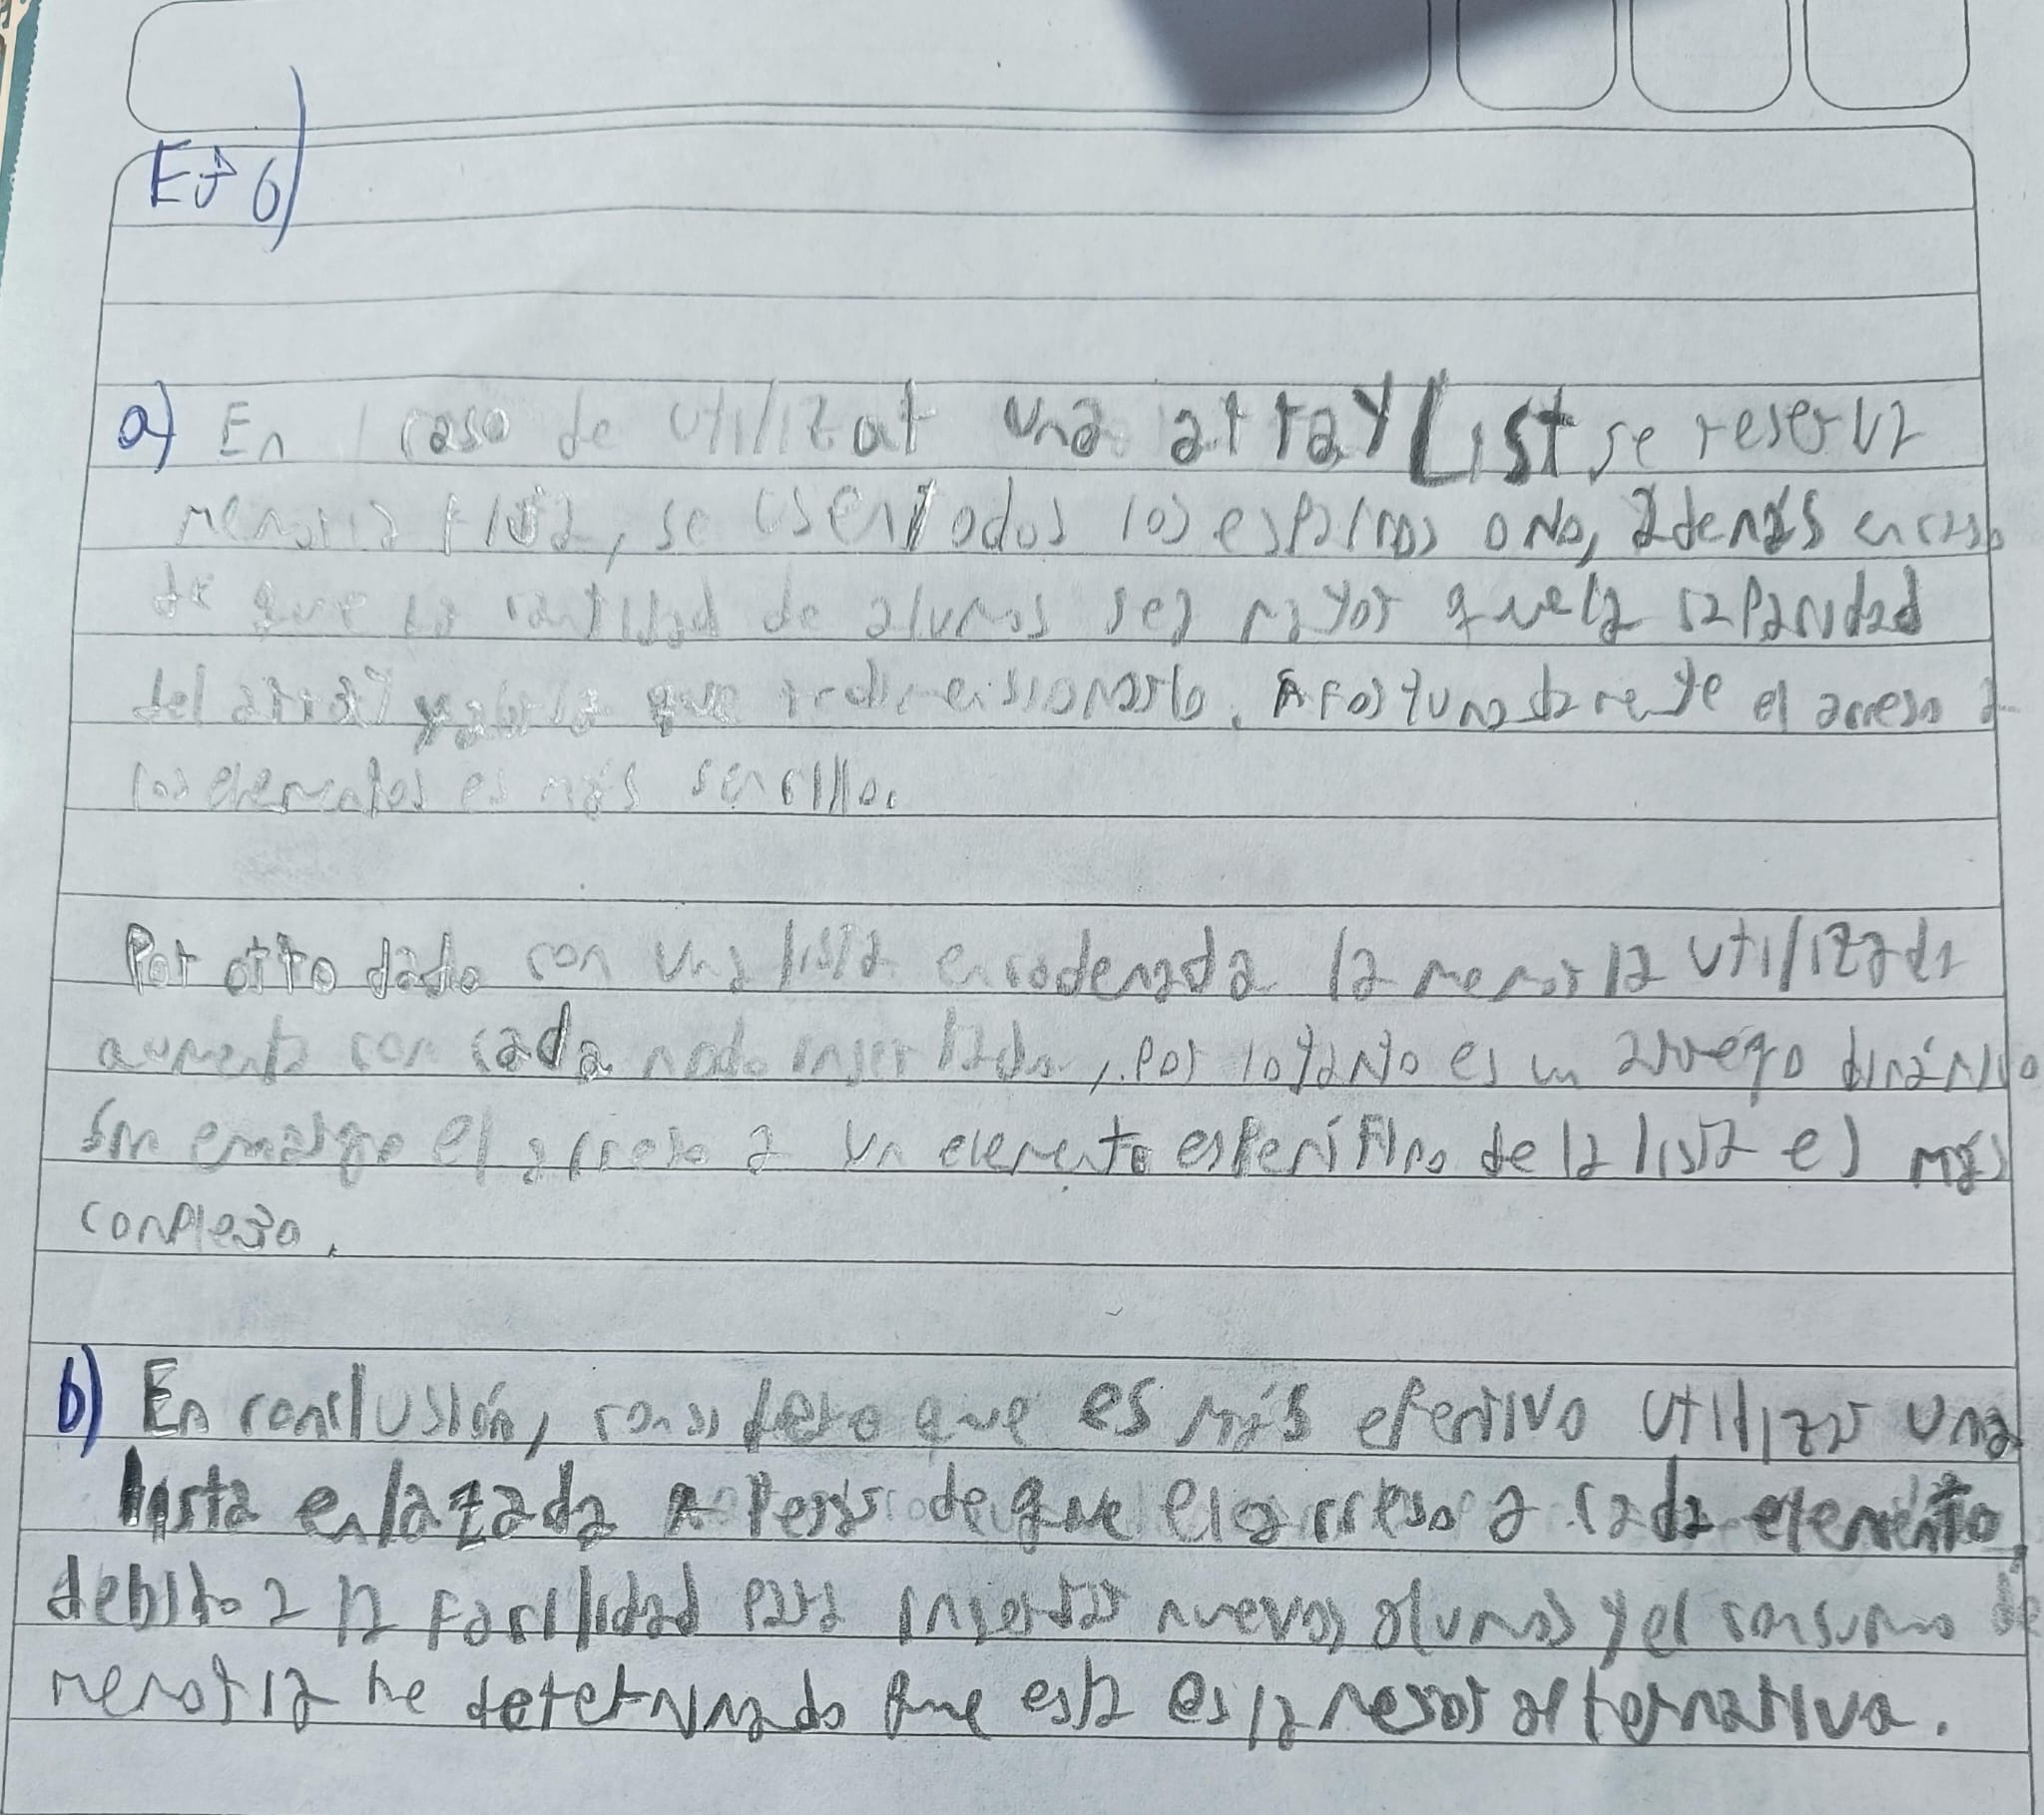 Ej 6)
a) En caso de utilizar una arrayList se reserva
memoria fija, se usen todos los espacios o no, además en caso
de que la cantidad de alumnos sea mayor que la capacidad
del array habría que redimensionarlo. Afortunadamente el acceso a
los elementos es más sencillo.
Por otro dado con una lista encadenada la memoria utilizada
aumenta con cada nodo insertado, por lo tanto es un arreglo dinámico
Sin emargo el acceso a un elemento específico de la lista es más
complejo.
b) En conclusión, considero que es más efectivo utilizar una
lista enlazada a pesar de que el acceso a cada elemento,
debido a la facilidad para insertar nuevos alumnos y el consumo de
memoria he determinado que esta es la mejor alternativa.